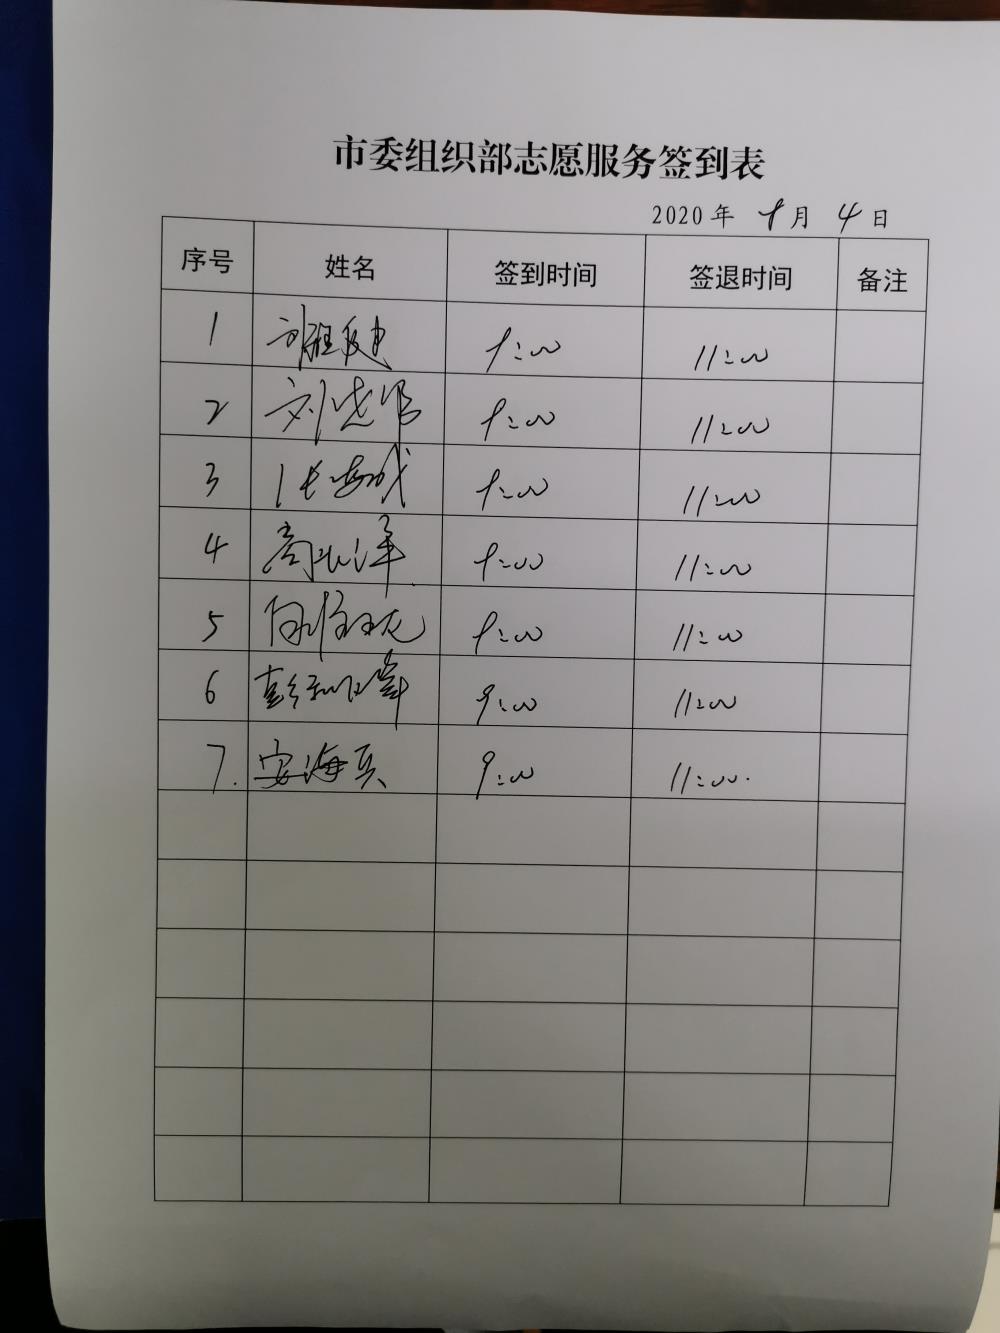 市委组织部志愿服务签到表
2020 年 9 月 4 日
序号 姓名 签到时间 签退时间 备注
1 9:00 11:00
2 刘 9:00 11:00
3 张 9:00 11:00
4 高 9:00 11:00
5 9:00 11:00
6 彭 9:00 11:00
7. 安海兵 9:00 11:00.